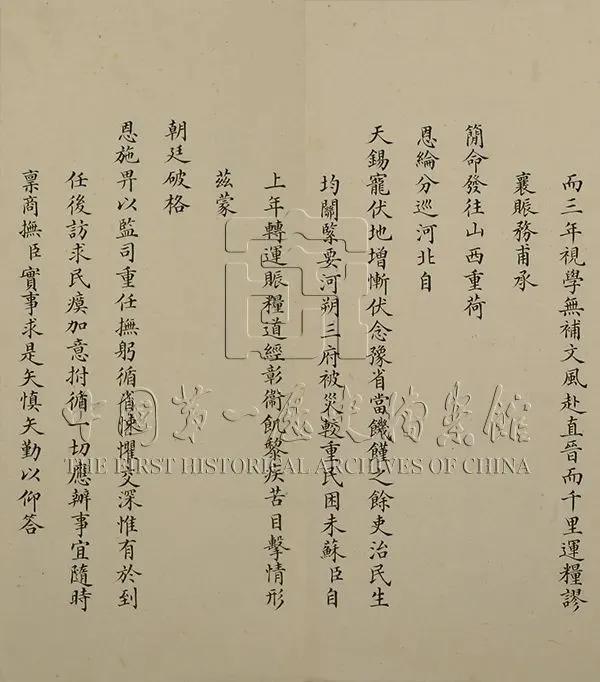 而三年視學無補文風赴直晉而千里運糧謬
襄賑務甫承
簡命發往山西重荷
恩綸分巡河北自
天錫寵伏地增慚伏念豫省當饑饉之餘吏治民生
均關緊要河朔三府被災較重民困未蘇臣自
上年轉運賑糧道經彰衞飢黎疾苦目擊情形
茲蒙
朝廷破格
恩施畀以監司重任撫躬循省悚懼交深惟有於到
任後訪求民瘼加意拊循一切應辦事宜隨時
稟商撫臣實事求是矢慎矢勤以仰答
中國第一歷史檔案館
THE FIRST HISTORICAL ARCHIVES OF CHINA